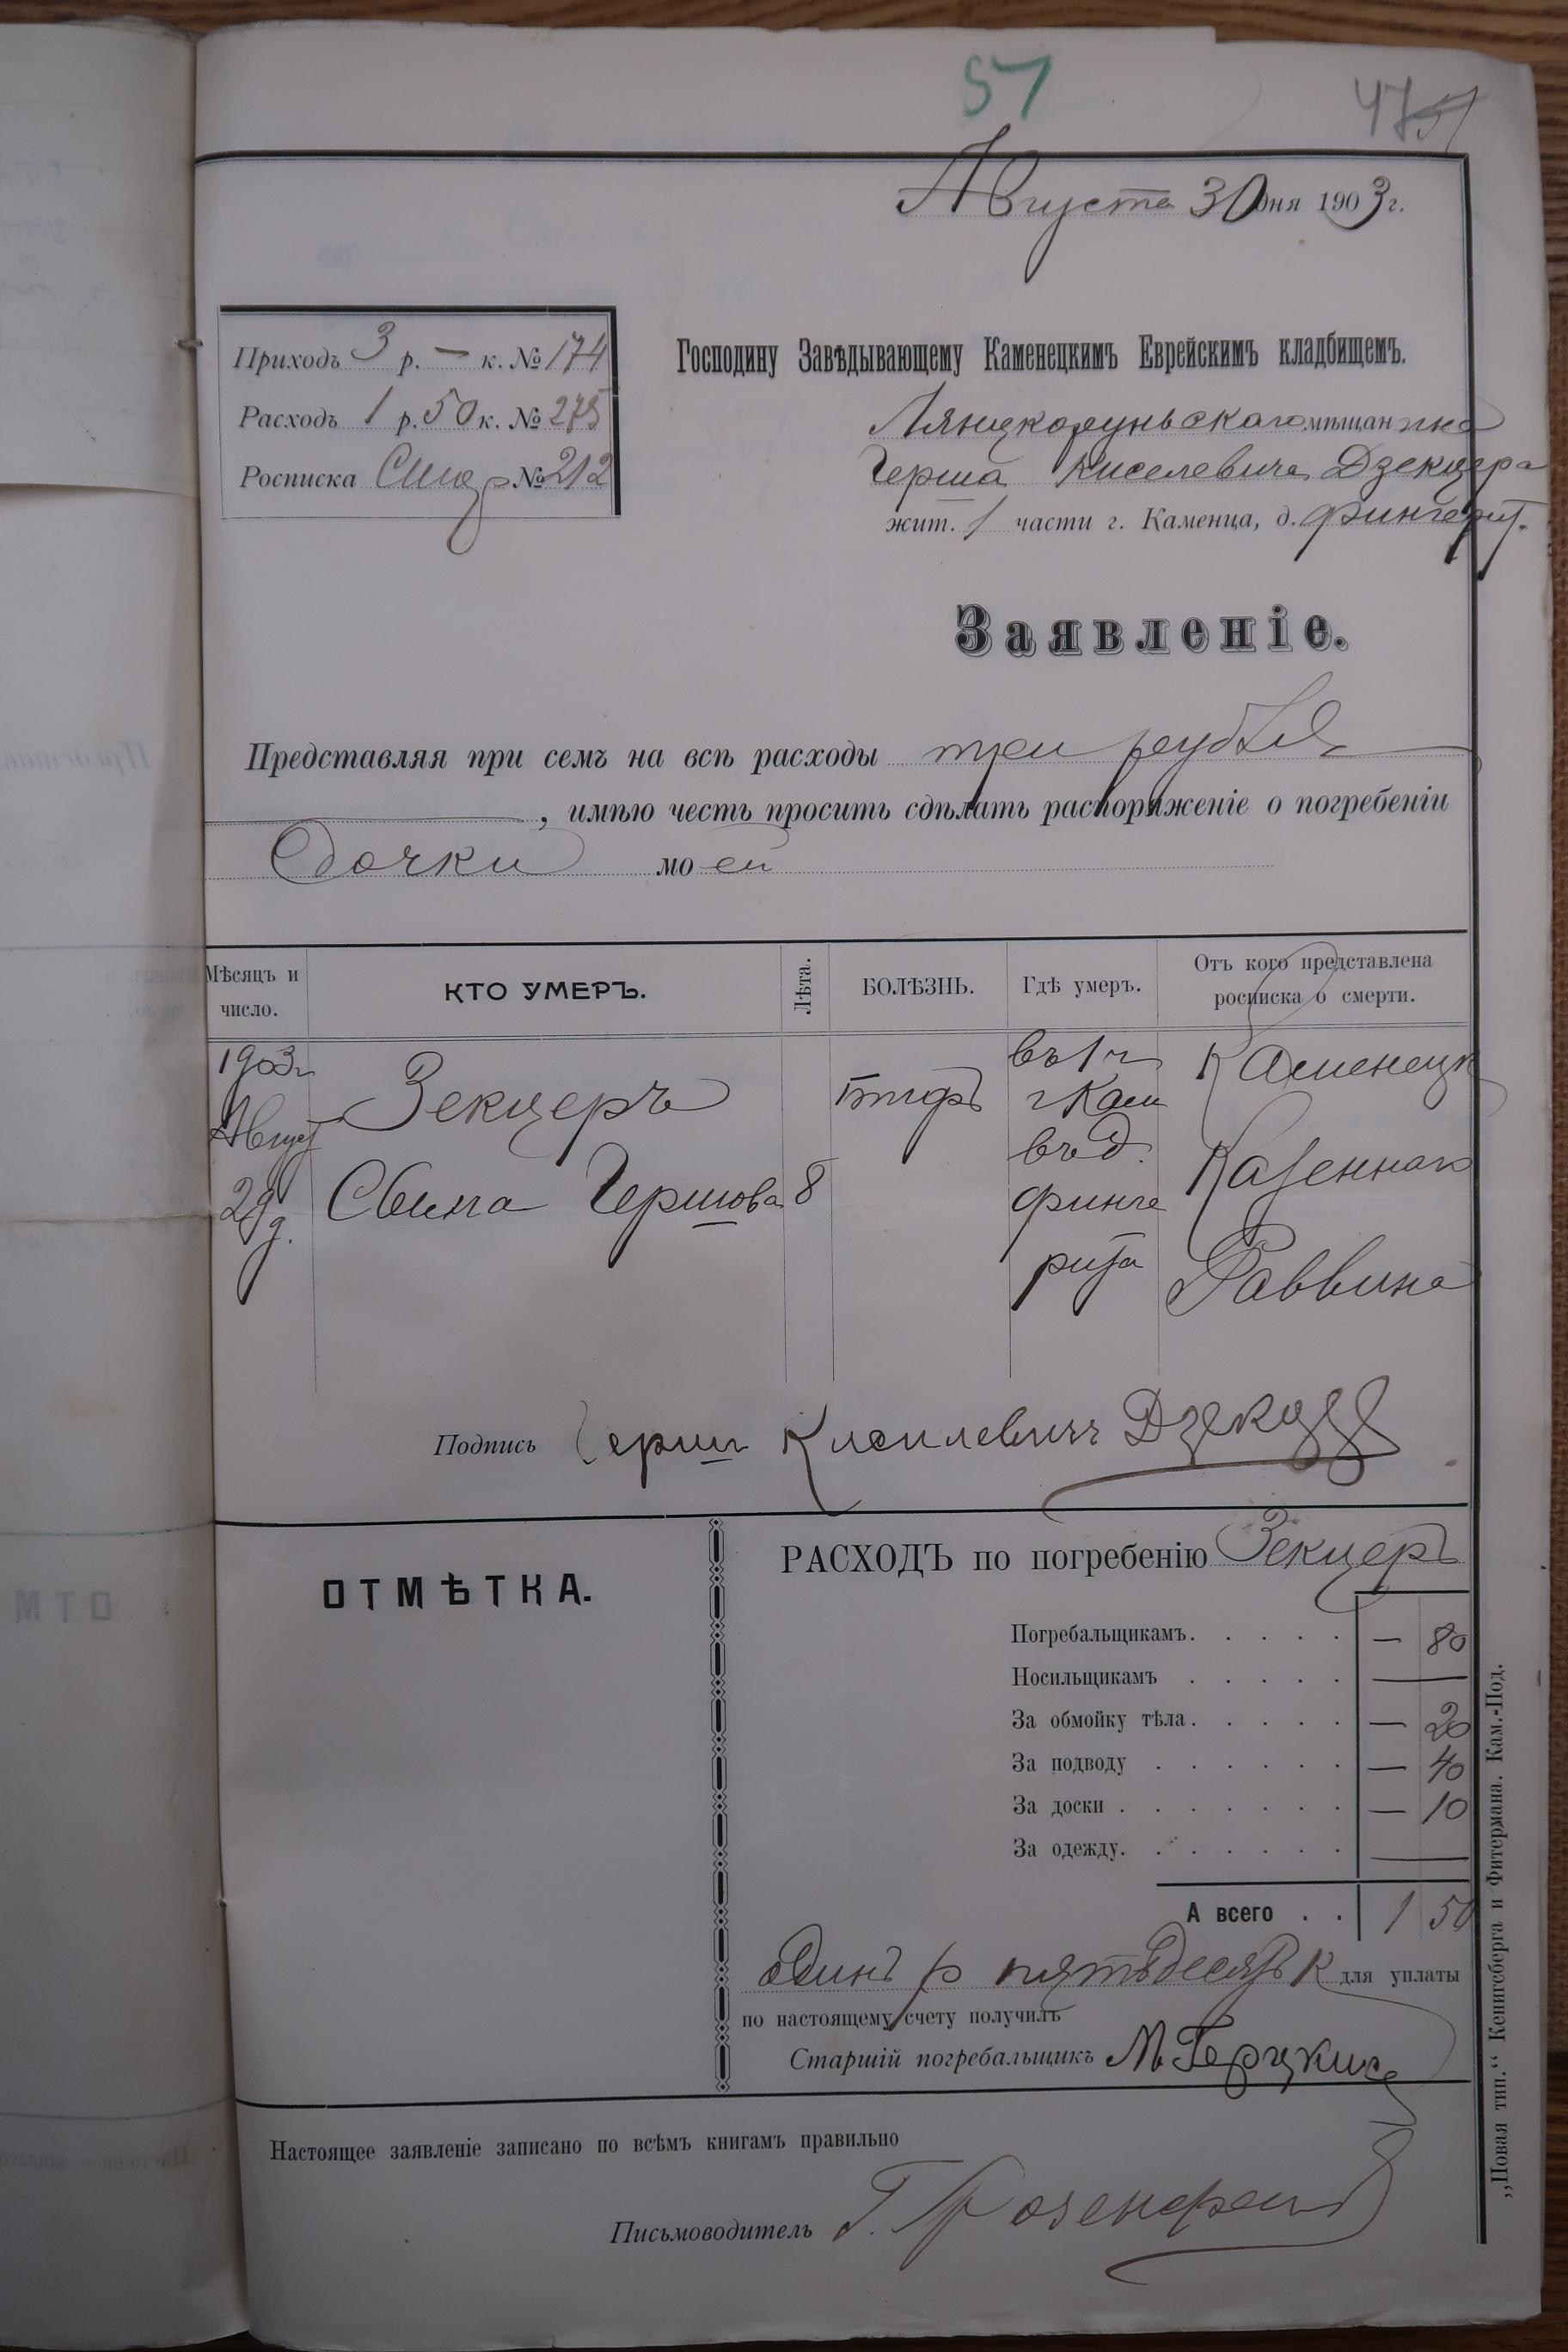 57
47
Августа 30 дня 1903 г.
Приходъ 3 р. — к. № 174
Расходъ 1 р. 50 к. № 275
Росписка № 212
Господину Завѣдывающему Каменецкимъ Еврейскимъ кладбищемъ.
Лянцкоруньскаго мѣщанина
Герша Киселевича Дзекцера
жит. 1 части г. Каменца, д. Фингерит.
Заявленіе.
Представляя при семъ на всѣ расходы три рубля
, имѣю честь просить сдѣлать распоряженіе о погребеніи
дочки моей
Мѣсяцъ и число.
КТО УМЕРЪ.
Лѣта.
БОЛѢЗНЬ.
Гдѣ умеръ.
Отъ кого представлена росписка о смерти.
1903 г
Август
29 д.
Зекцеръ
Гершова
8
тифъ
въ 1 ч
г Кам
въ д.
Финге
рита
Каменецк
Казеннаго
Раввина
Подпись Герш Кисилевичъ Дзекцер
ОТМѢТКА.
РАСХОДЪ по погребенію Зекцеръ
Погребальщикамъ. . . . . — 80
Носильщикамъ . . . . . —
За обмойку тѣла. . . . . — 20
За подводу . . . . . . — 40
За доски . . . . . . . — 10
За одежду. . . . . . . —
А всего . . 1 50
одинъ р пятьдесятъ к для уплаты
по настоящему счету получилъ
Старшій погребальщикъ М.
Настоящее заявленіе записано по всѣмъ книгамъ правильно
Письмоводитель Г. Розенфельд
„Новая тип.“ Кенигсберга и Фитермана. Кам.-Под.